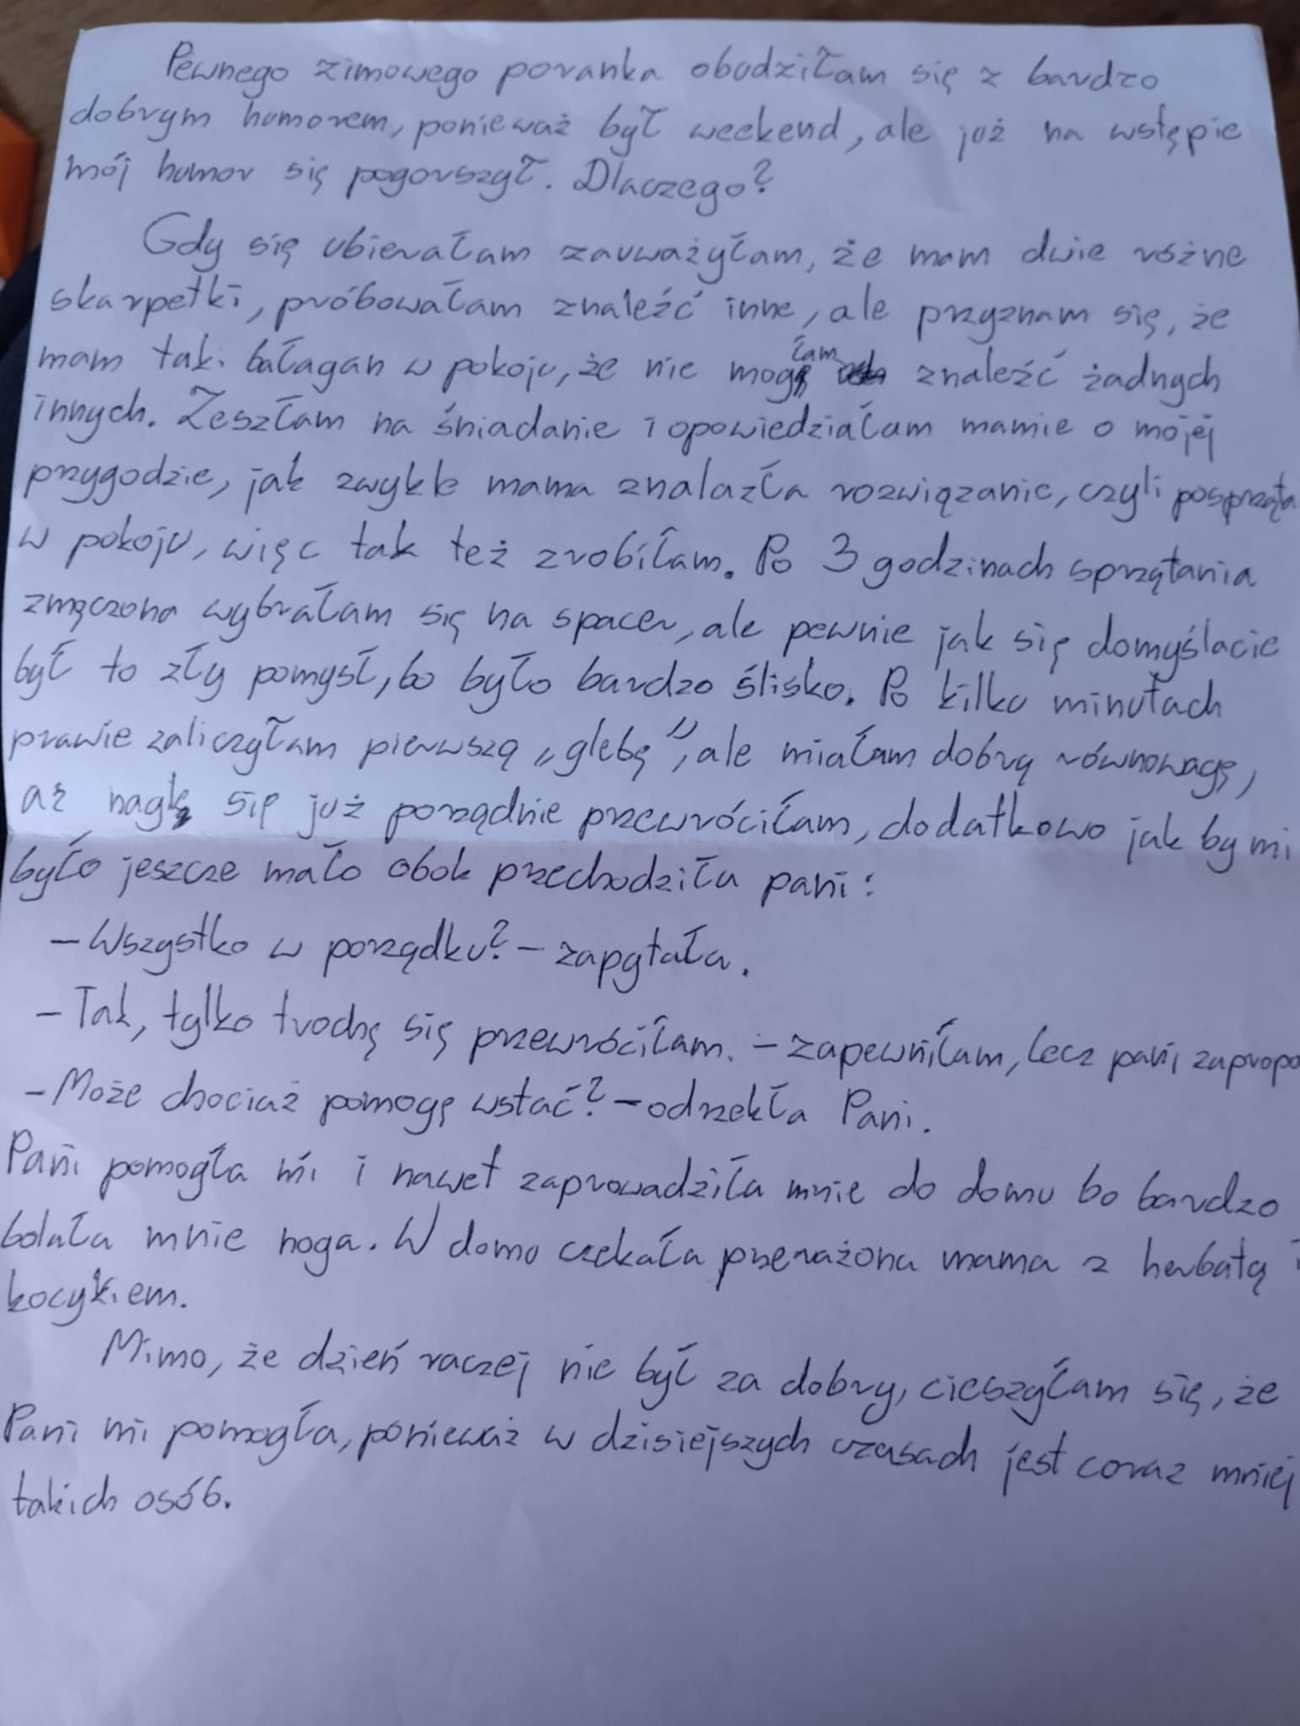 Pewnego zimowego poranka obudziłam się z bardzo
dobrym humorem, ponieważ był weekend, ale już na wstępie
mój humor się pogorszył. Dlaczego?
Gdy się ubierałam zauważyłam, że mam dwie różne
skarpetki, próbowałam znaleźć inne, ale przyznam się, że
mam taki bałagan w pokoju, że nie mogłam znaleźć żadnych
innych. Zeszłam na śniadanie i opowiedziałam mamie o mojej
przygodzie, jak zwykle mama znalazła rozwiązanie, czyli posprząta
w pokoju, więc tak też zrobiłam. Po 3 godzinach sprzątania
zmęczona wybrałam się na spacer, ale pewnie jak się domyślacie
był to zły pomysł, bo było bardzo ślisko. Po kilku minutach
prawie zaliczyłam pierwszą „glebę”, ale miałam dobrą równowagę,
aż nagle się już porządnie przewróciłam, dodatkowo jak by mi
było jeszcze mało obok przechodziła pani:
- Wszystko w porządku? - zapytała.
- Tak, tylko trochę się przewróciłam. - zapewniłam, lecz pani zapropo
- Może chociaż pomogę wstać? - odrzekła Pani.
Pani pomogła mi i nawet zaprowadziła mnie do domu bo bardzo
bolała mnie noga. W domu czekała przerażona mama z herbatą i
kocykiem.
Mimo, że dzień raczej nie był za dobry, cieszyłam się, że
Pani mi pomogła, ponieważ w dzisiejszych czasach jest coraz mniej
takich osób.